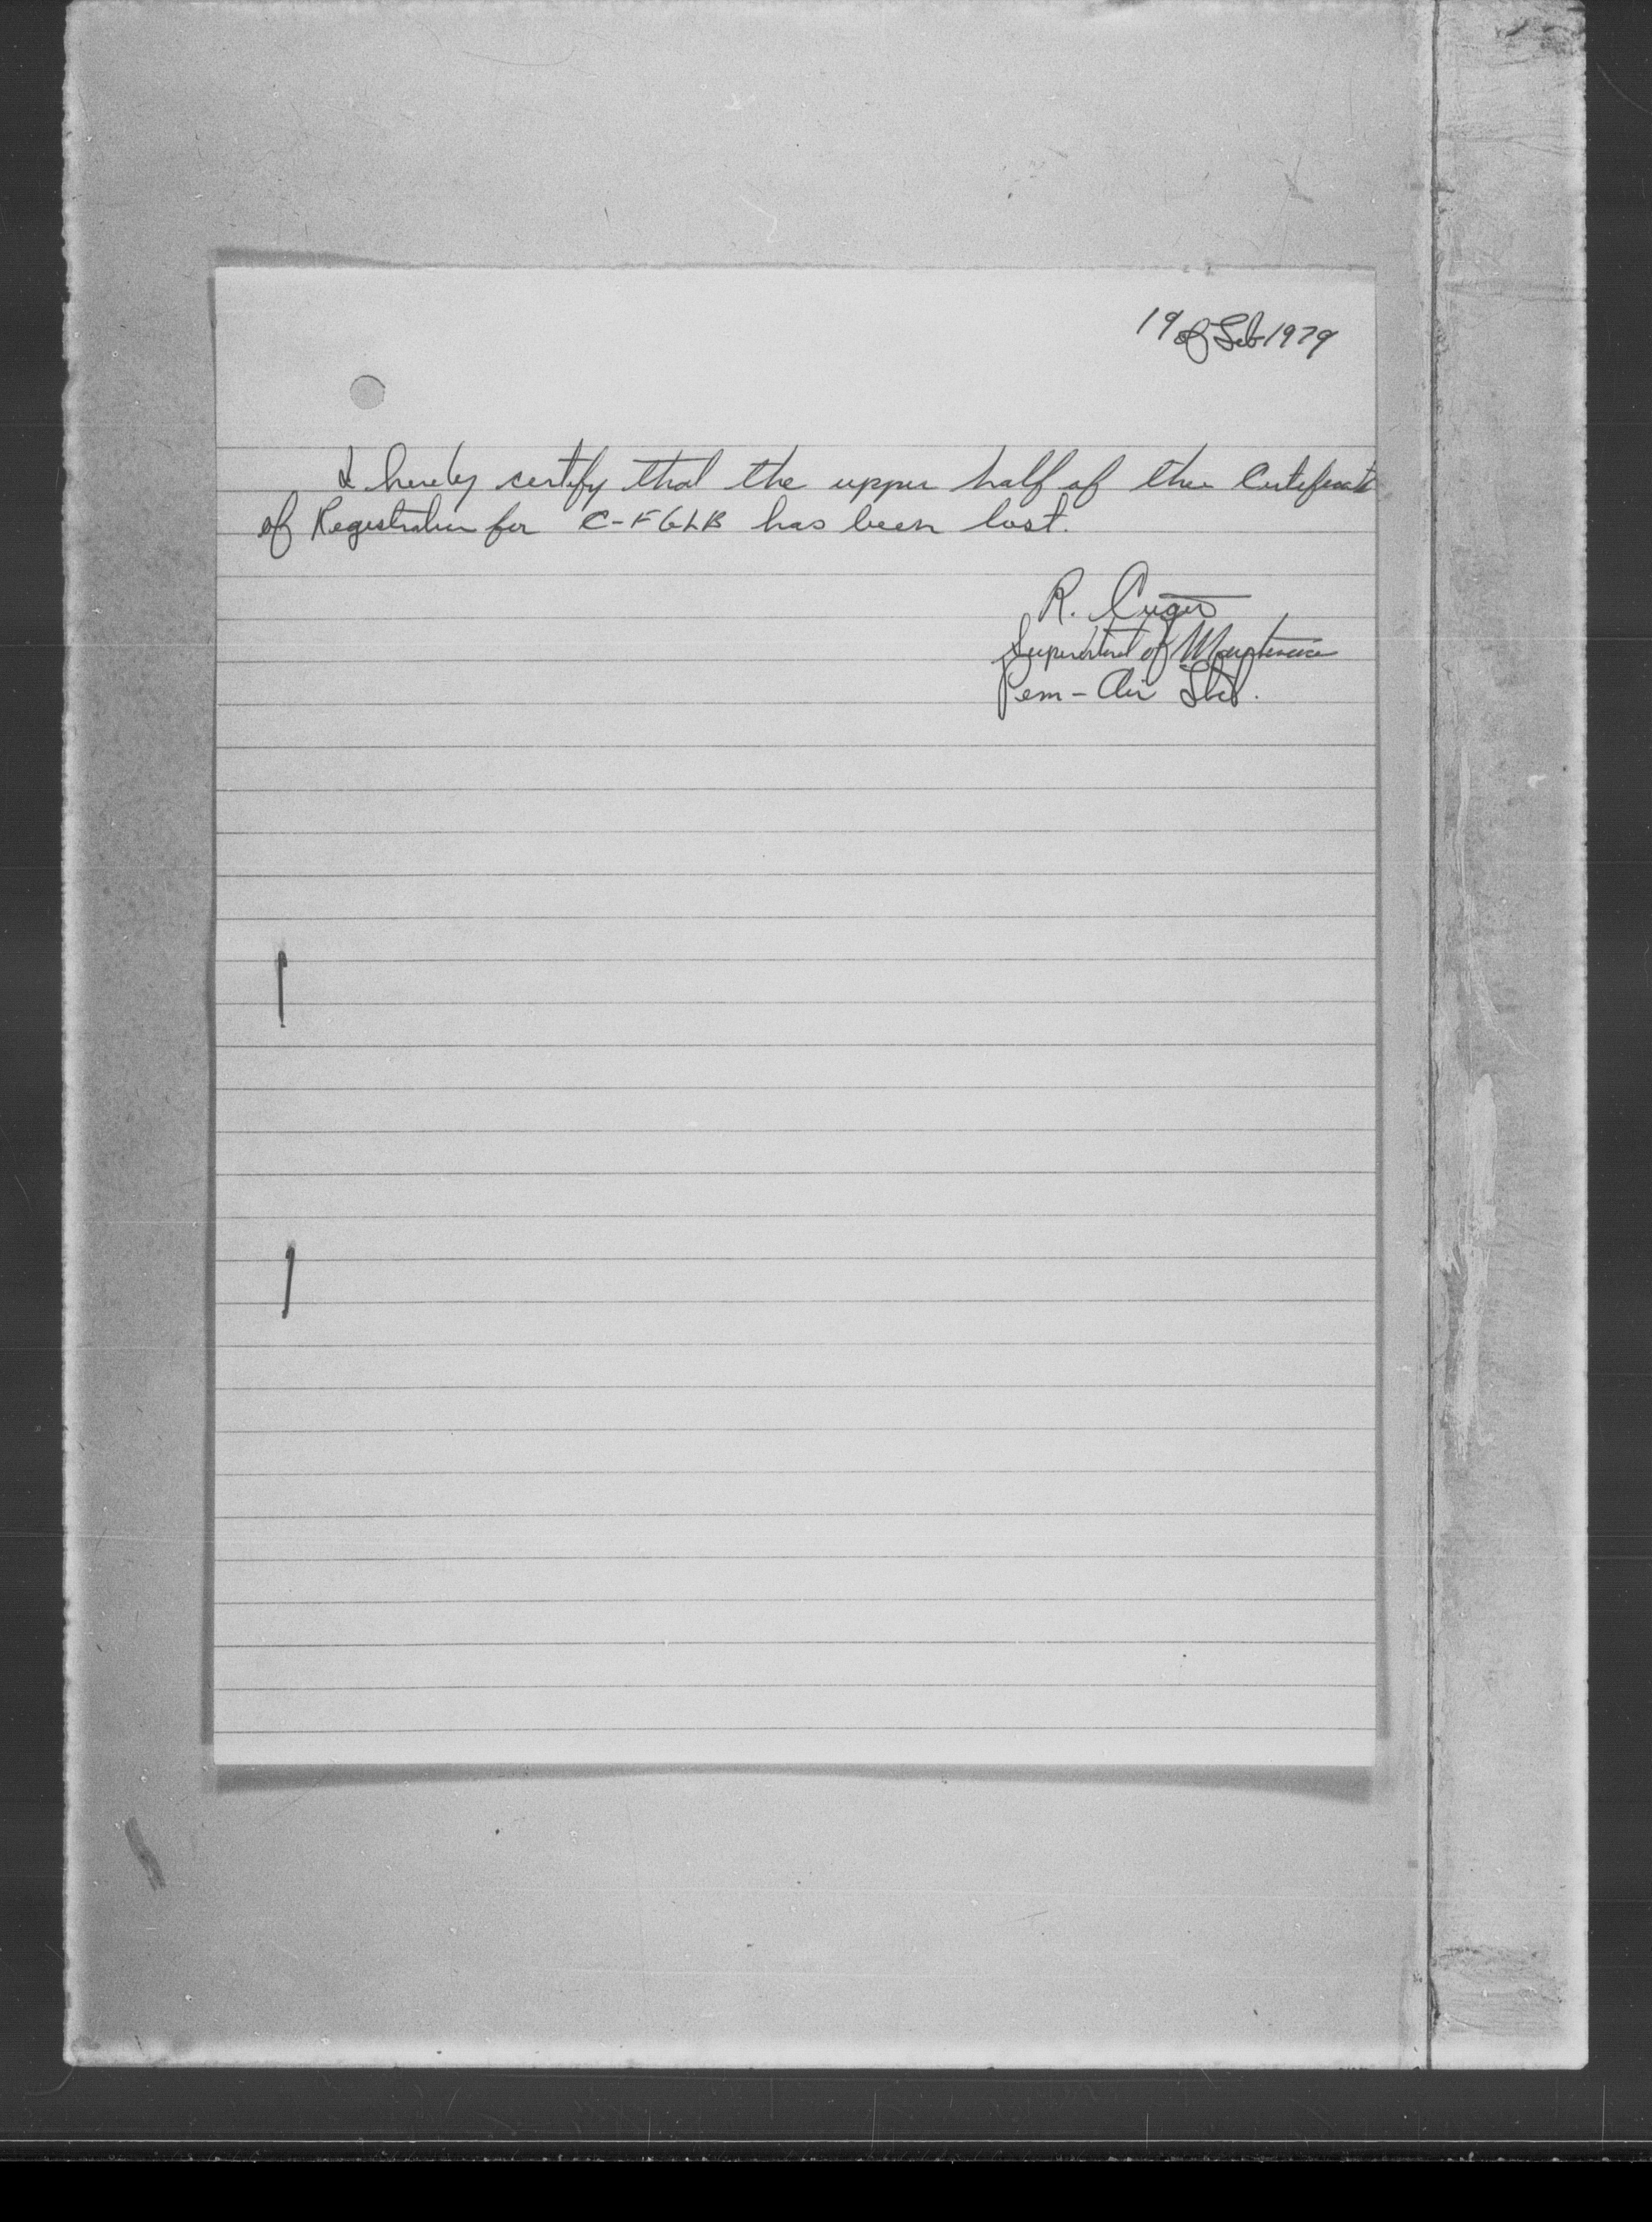 19 of Feb 1979
I hereby certify that the upper half of the Certificate
of Registration for C-FGLB has been lost.
R.
Superintendent of Maintenance
Pem-Air Ltd.